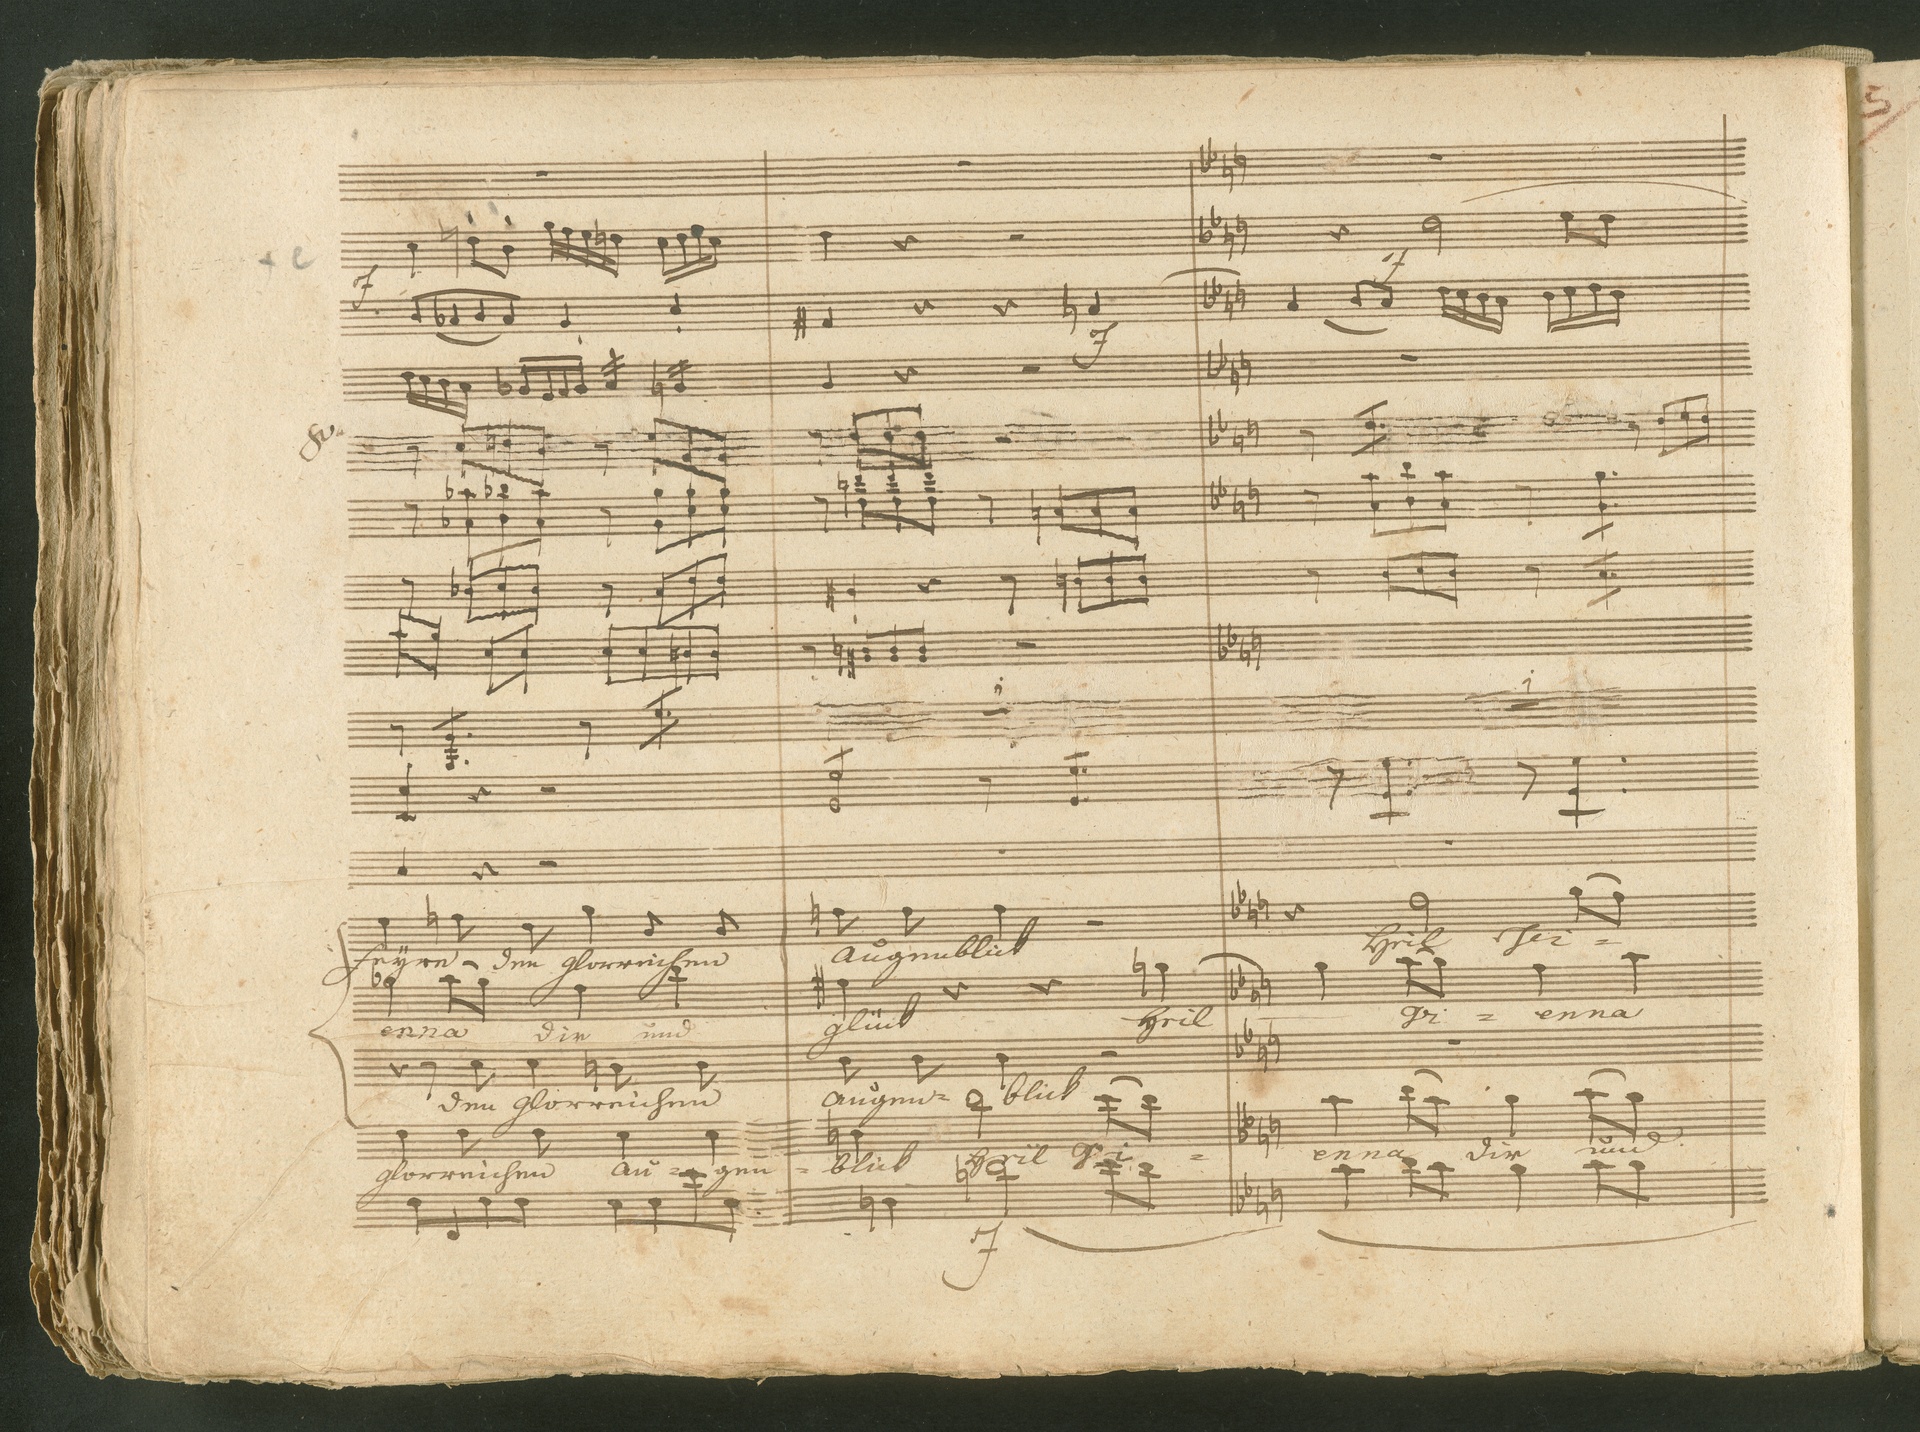 5
f
f
f
8v.
feyre - den glorreichen Augenblick Heil Vi =
enna dir und glück Heil Vi = enna
den glorreichen augen= blick
glorreichen au = gen = blick Heil Vi = enna dir und
f